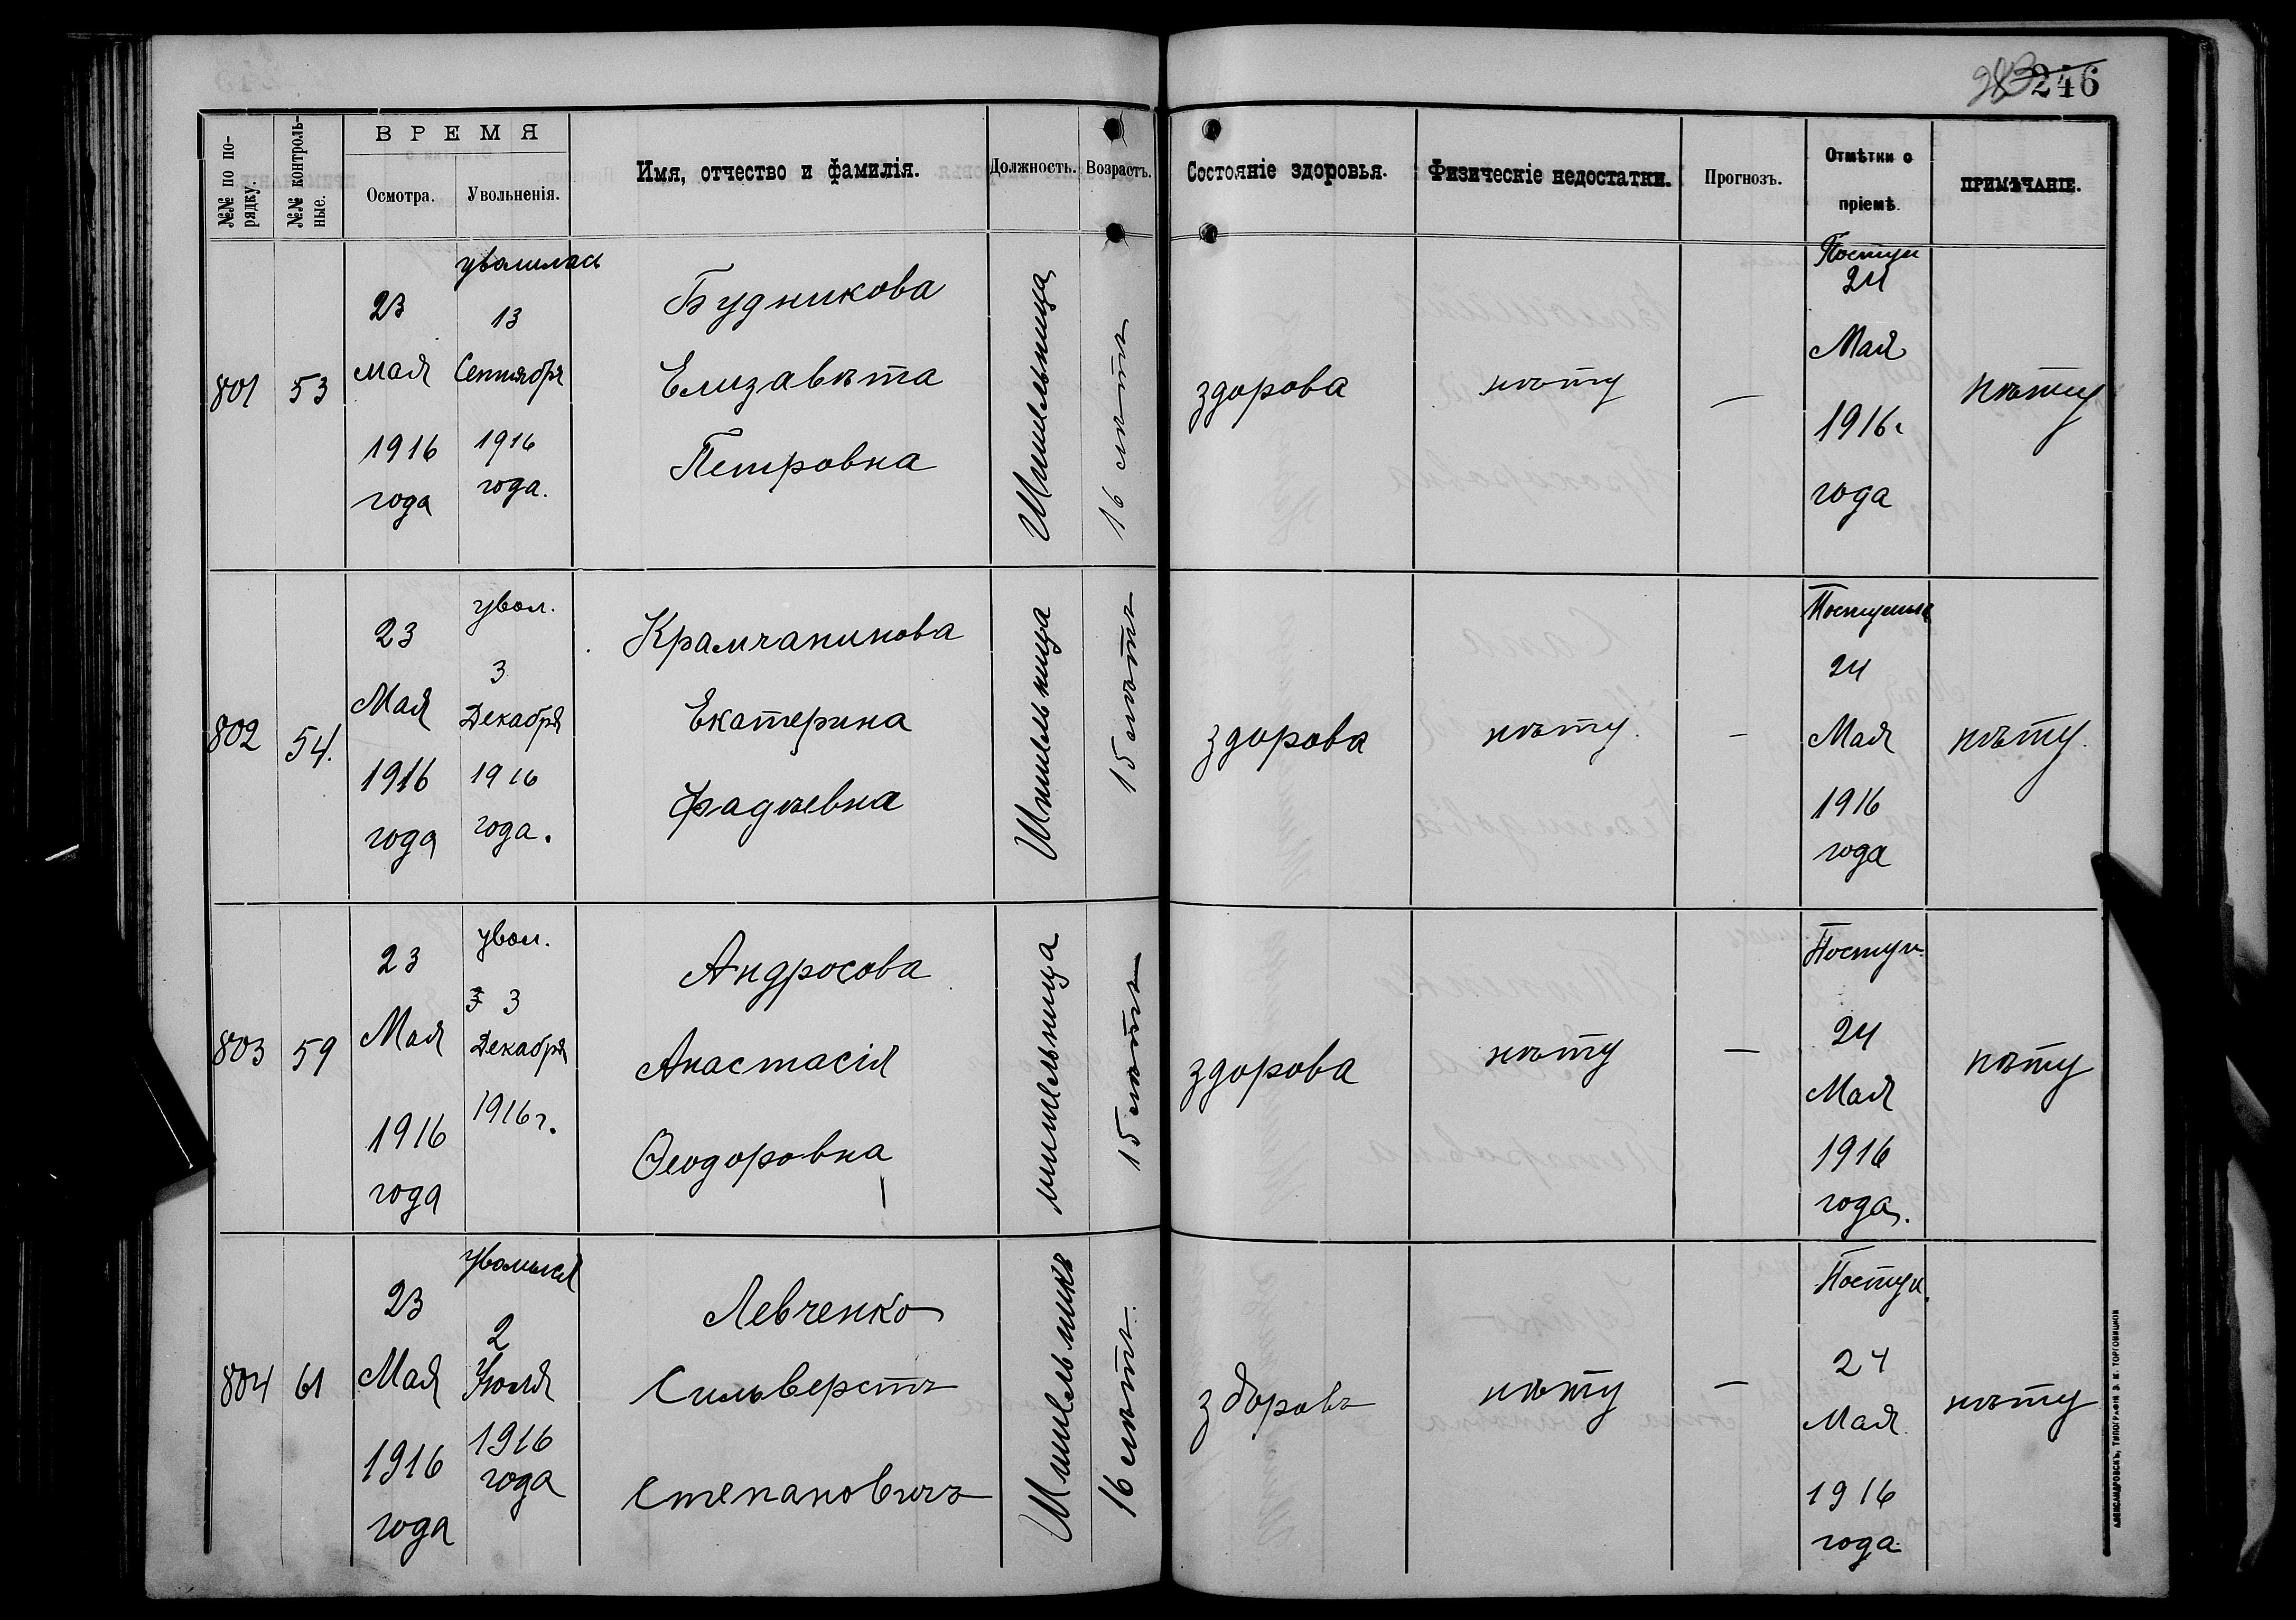 283 246
№№ по по-
рядку.
№№ контроль-
ные.
ВРЕМЯ
Осмотра.
Увольненія.
Имя, отчество и фамилія.
Должность.
Возрастъ.
Состояніе здоровья.
Физическіе недостатки.
Прогнозъ.
Отмѣтки о
пріемѣ.
ПРИМѢЧАНІЕ.
801
53
23
мая
1916
года
уволилась
13
Сентября
1916
года.
Будникова
Елизавѣта
Петровна
Шпилельница
16 лѣтъ
здорова
нѣту
—
Поступ
24
Мая
1916 г
года
нѣту
802
54.
23
Мая
1916
года
увол.
3
Декабря
1916
года.
Крамчанинова
Екатерина
Фадѣевна
Шпилельница
15 лѣтъ
здорова
нѣту.
—
Поступила
24
Мая
1916
года
нѣту.
803
59
23
Мая
1916
года
увол.
3 3
Декабря
1916 г.
Андросова
Анастасія
Ѳеодоровна
шпилельница
15 лѣтъ
здорова
нѣту
—
Поступ.
24
Мая
1916
года.
нѣту
804
61
23
Мая
1916
года
Уволился
2
Іюля
1916
года
Левченко
Сильверстъ
Степановичъ
16 лѣтъ.
здоровъ
нѣту
—
Поступ.
24
Мая.
1916
года.
нѣту
АЛЕКСАНДРОВСКЪ, ТИПОГРАФІЯ Э. И. ТОРГОВИЦКОВ